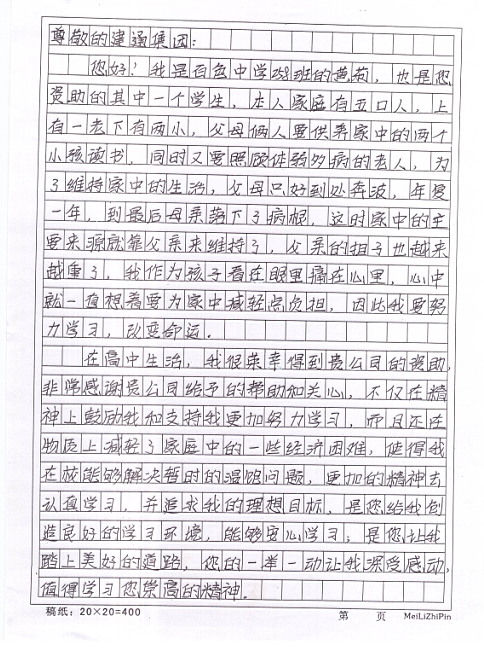 尊敬的建通集团：
您好！我是百色中学班的黄莉，也是您
资助的其中一个学生，本人家庭有五口人，上
有一老下有两小，父母俩人要供养家中的两个
小孩读书，同时又要照顾体弱多病的老人，为
了维持家中的生活，父母只好到处奔波，年复
一年，到最后母亲落下了病根，这时家中的主
要来源就靠父亲来维持了，父亲的担子也越来
越重了，我作为孩子看在眼里痛在心里，心中
就一直想着要为家中减轻点负担，因此我要努
力学习，改变命运．
在高中生活，我很荣幸得到贵公司的资助，
非常感谢贵公司给予的帮助和关心，不仅在精
神上鼓励我和支持我更加努力学习，而且还在
物质上减轻了家庭中的一些经济困难，使得我
在校能够解决暂时的温饱问题，更加的精神去
认真学习，并追求我的理想目标，是您给我创
造良好的学习环境，能够安心学习；是您让我
踏上美好的道路，您的一举一动让我深受感动，
值得学习您崇高的精神．
稿纸：20×20=400 第 页 MeiLiZhiPin